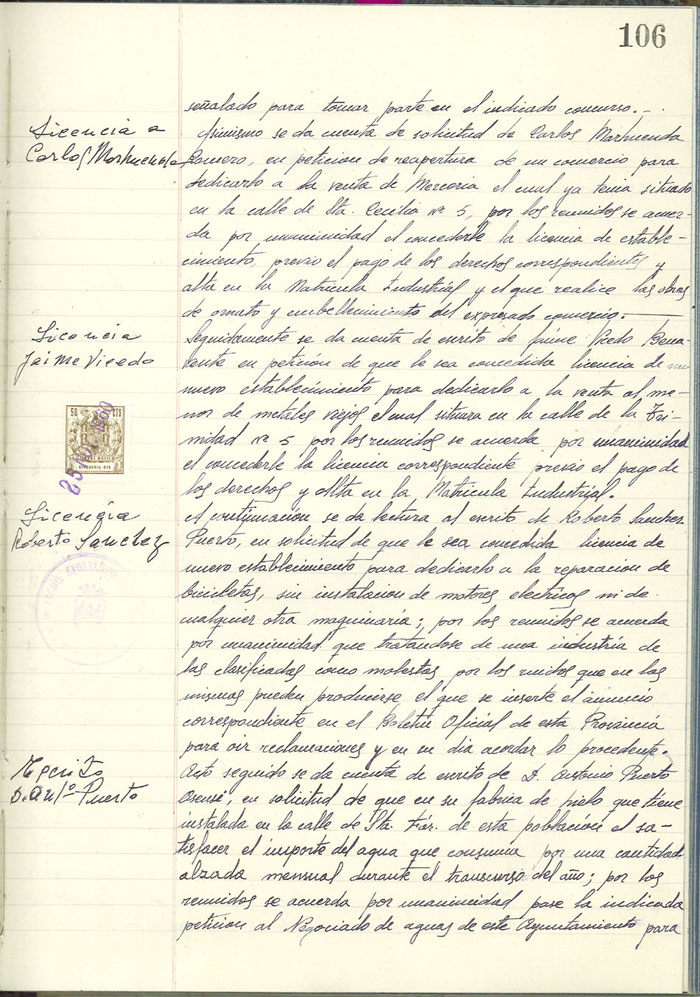 106
señalado para tomar parte en el indicado concurso.-
Licencia a
Carlos Marhuenda
Asimismo se da cuenta de solicitud de Carlos Marhuenda
Romero, en peticion de reapertura de un comercio para
dedicarlo a la venta de Merceria el cual ya tenia situado
en la calle de Sta. Cecilia nº 5, por los reunidos se acuer-
da por unanimidad el concederle la licencia de estable-
cimiento, previo el pago de los derechos correspondientes y
alta en la Matricula Industrial y el que realice las obras
de ornato y embellecimiento del expresado comercio.-
Licencia
Jaime Vicedo
Seguidamente se da cuenta de escrito de Jaime Vicedo Bena-
vente en petición de que le sea concedida licencia de
nuevo establecimiento para dedicarlo a la venta al me-
nor de metales viejos el cual situara en la calle de la Tri-
nidad nº 5 por los reunidos se acuerda por unanimidad
el concederle la licencia correspondiente previo el pago de
los derechos y Alta en la Matricula Industrial.
50 CTS
25
1960
Licencia
Roberto Sanchez
A continuación se da lectura al escrito de Roberto Sanchez
Puerto, en solicitud de que le sea concedida licencia de
nuevo establecimiento para dedicarlo a la reparacion de
bicicletas, sin instalacion de motores electricos ni de
cualquier otra maquinaria; por los reunidos se acuerda
por unanimidad que tratandose de una industria de
las clasificadas como molestas, por los ruidos que en las
mismas pueden producirse el que se inserte el anuncio
correspondiente en el Boletin Oficial de esta Provincia
para oir reclamaciones y en su dia acordar lo procedente.
Escrito
D. Antº Puerto
Acto seguido se da cuenta de escrito de D. Antonio Puerto
Asensi, en solicitud de que en su fabrica de hielo que tiene
instalada en la calle de Sta. Fáz. de esta población el sa-
tisfacer el importe del agua que consuma por una cantidad
alzada mensual durante el transcurso del año; por los
reunidos se acuerda por unanimidad pase la indicada
peticion al Negociado de aguas de este Ayuntamiento para